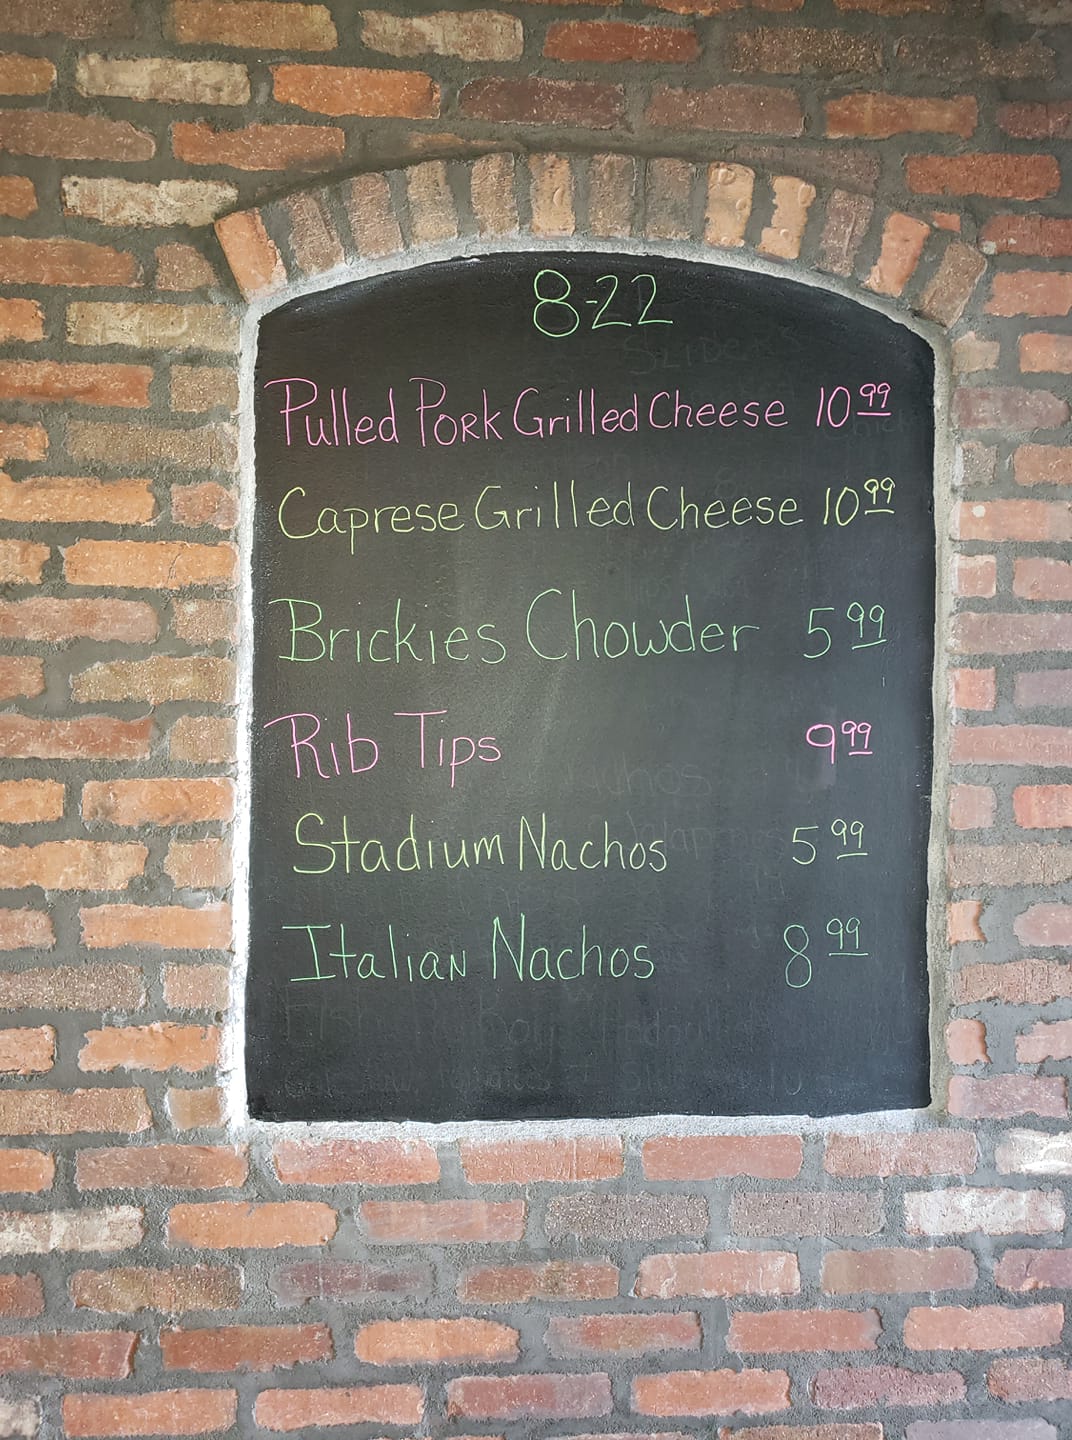 8-22
Pulled Pork Grilled Cheese 10 99
Caprese Grilled Cheese 10 99
Brickies Chowder 5 99
Rib Tips 9 99
Stadium Nachos 5 99
Italian Nachos 8 99